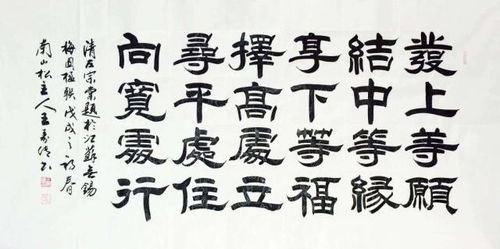 發上等願
結中等緣
享下等福
擇高處立
尋平處住
向寬處行
清左宗棠題於江蘇無錫
梅園楹联戊戌之初春
南山松主人王